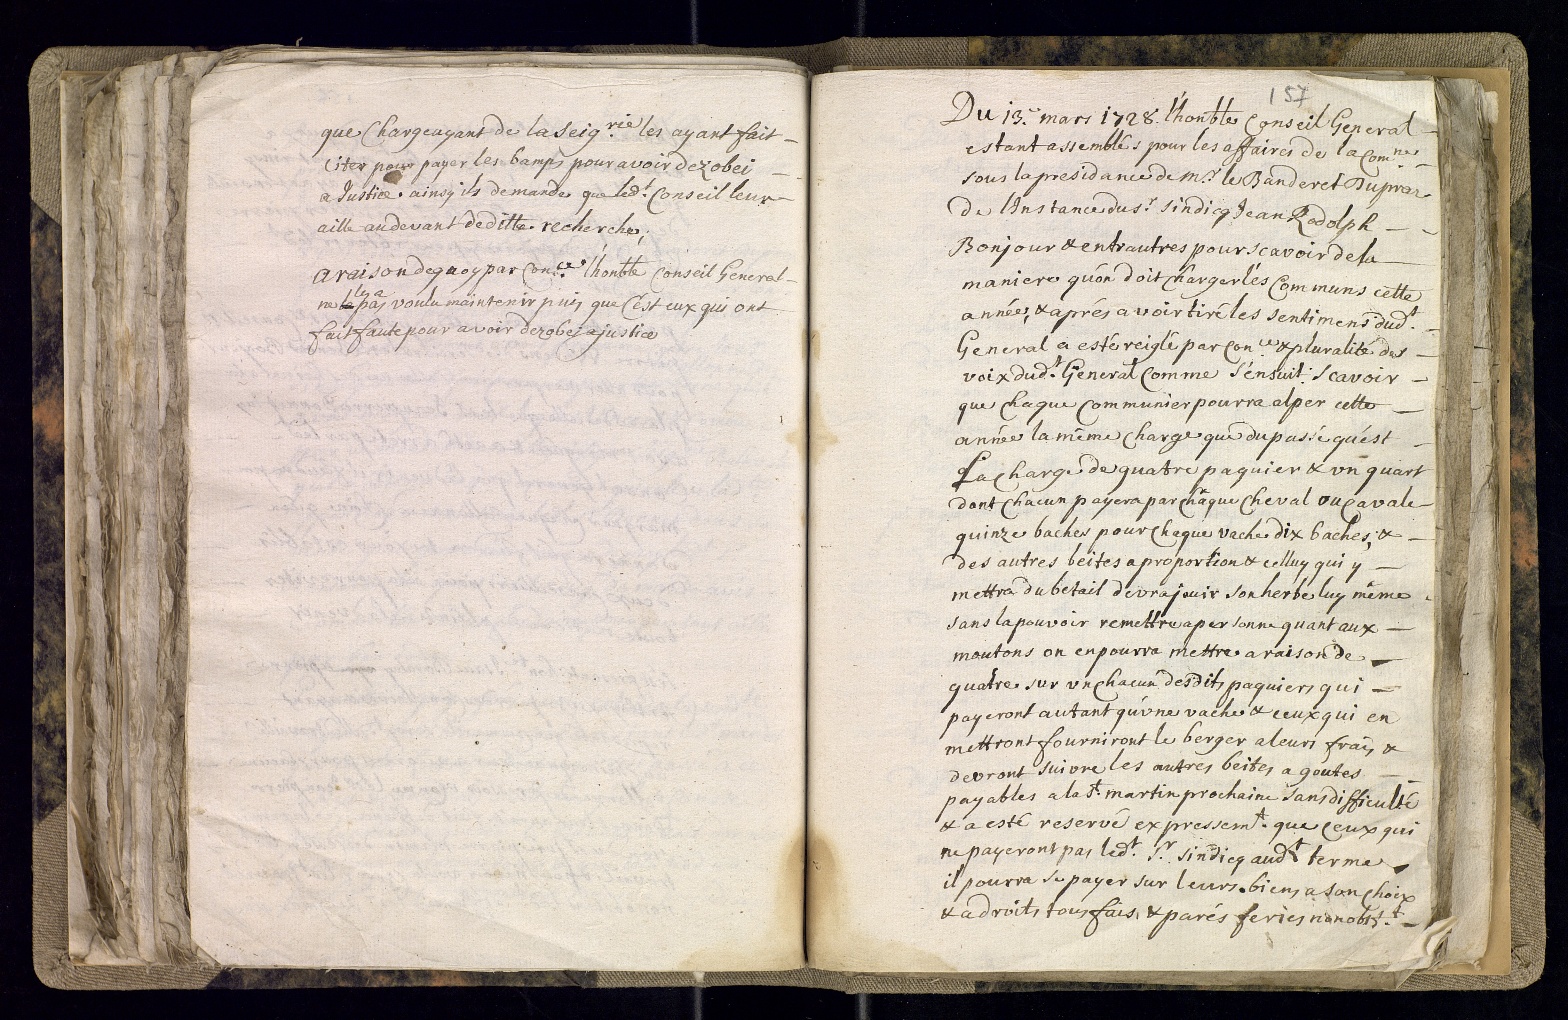 que Chargeayant de la Seig.rie les ayant fait
citer pour payer les bamps pour avoir dezobei
a Justice. ainsy ils demande que led.t Conseil leur
aille audevant deditte recherche;
a raison dequoy par Con.ce l'honble Conseil General
ne les a pas voulu maintenir puis que C'est eux qui ont
fait faute pour avoir dezobei a justice
157
Du 13.e mars 1728. l'honble Conseil General
estant assemblés pour les affaires de la Com.ne
sous la presidance de m.r le Banderet Dupraz
de l'Instance du s.r sindicq Jean Rodolph
Bonjour & entrautres pour scavoir de la
maniere qu'on doit charger les Communs cette
année, & aprés avoir tiré les sentimens dud.t
General a esté reiglé par Con.ce & pluralité des
voix dud.t General Comme s'ensuit: Scavoir
que chaque Communier pourra alper cette
année la même charge que du passé qu'est
La charge de quatre paquier & vn quart
dont chacun payera par chaque Cheval ou Cavale
quinze baches pour chaque vache dix baches; &
des autres beites a proportion & celluy qui y
mettra du betail devra jouir son herbe luy même
sans la pouvoir remettre a personne quant aux
moutons on en pourra mettre a raison de
quatre sur vn chacun desdits paquiers qui
payeront autant qu'vne vache & ceux qui en
mettront fourniront le berger a leurs frais &
devront suivre les autres beites a goutes
payables a la s.t martin prochaine sans difficulté
& a esté reservé expressem.t que ceux qui
ne payeront pas led.t S.r sindicq aud.t terme
il pourra se payer sur leurs biens a son choix
& a droits tous fais, & parés feries nonobst.t